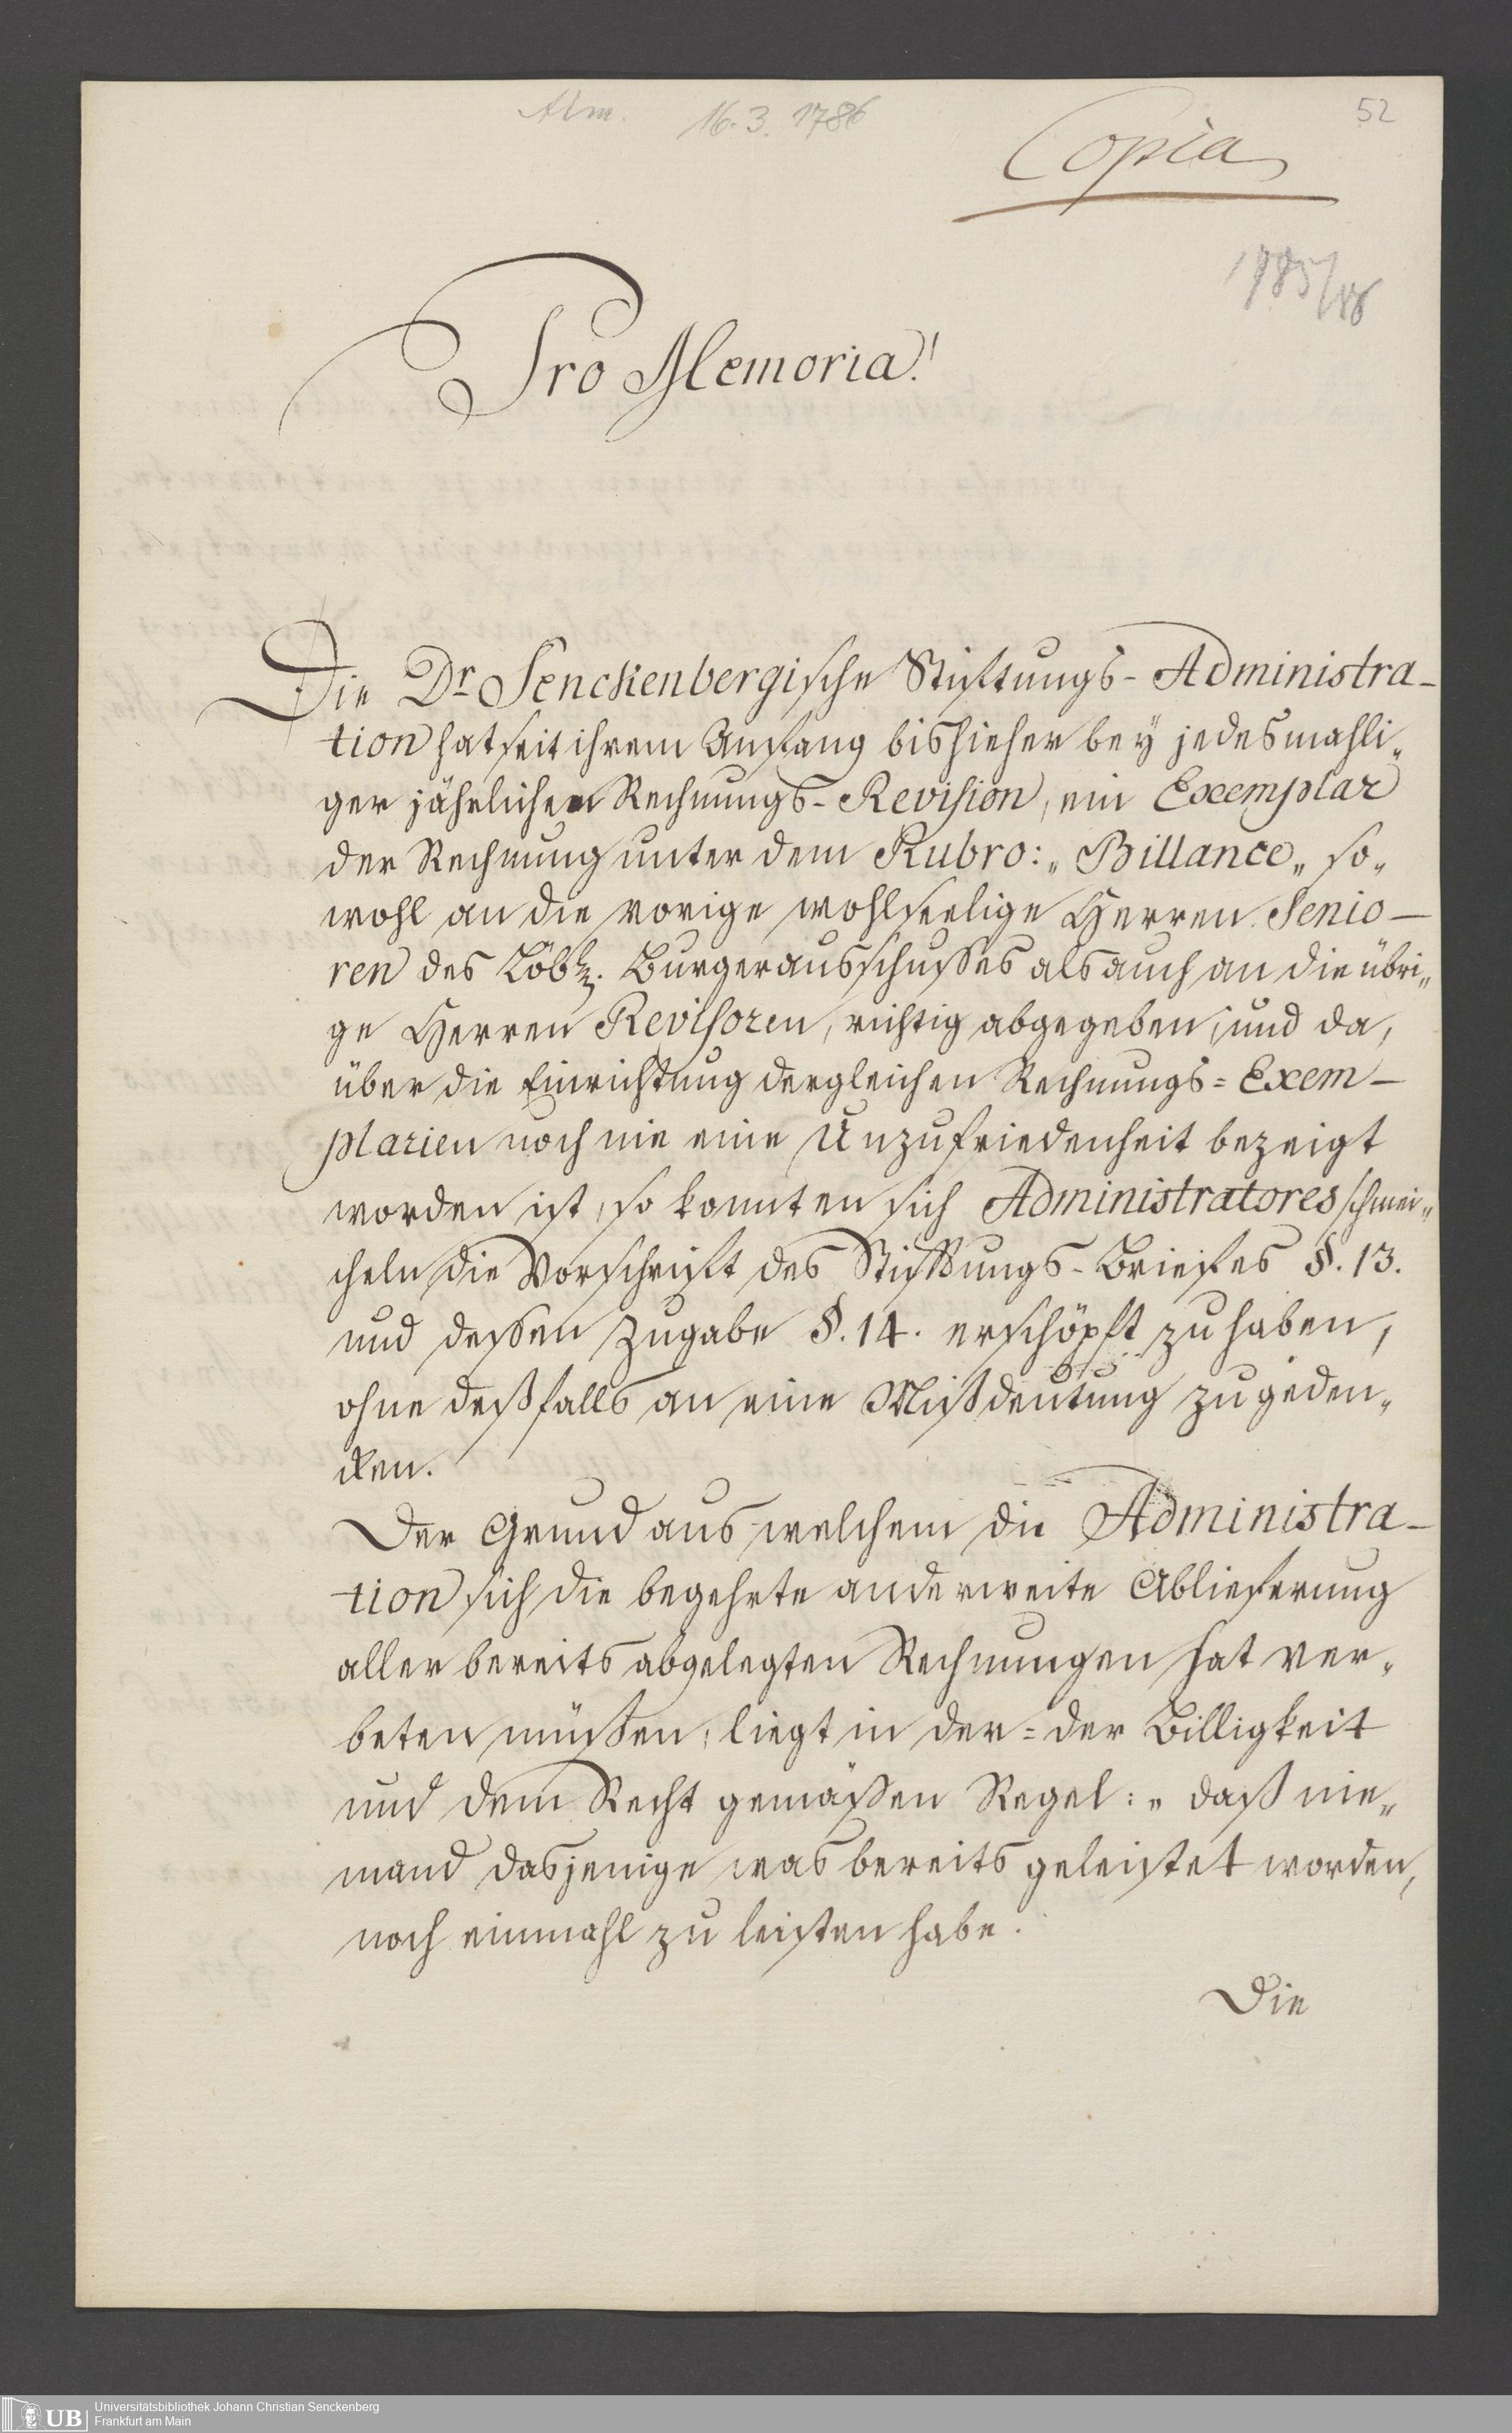 Adm. 16.3.1786
52
Copia
1785/86
Pro Memoria!
Die Dr. Senckenbergische Stiftungs-Administra-
tion hat seit ihrem Anfang bishieher bey jedesmahli„
ger jährlichen Rechnungs-Revision, ein Exemplar
der Rechnung unter dem Rubro: „Billance„ so„
wohl an die vorige wohlseelige Herren Senio-
ren des Löbl. Burgerausschusses als auch an die übri„
ge Herren Revisoren, richtig abgegeben, und da,
über die Einrichtung dergleichen Rechnungs=Exem-
plarien noch nie eine Unzufriedenheit bezeigt
worden ist, so konnten sich Administratores schmei„
cheln die Vorschrift des Stiftungs-Briefes §.13.
und dessen Zugabe §.14. erschöpft zu haben,
ohne deßfalls an eine Mißdeutung zu geden„
cken.
Der Grund aus welchem die Administra-
tion sich die begehrte anderweite Ablieferung
aller bereits abgelegten Rechnungen hat ver„
beten müssen, liegt in der=der Billigkeit
und dem Recht gemässen Regel: „daß nie„
mand dasjenige was bereits geleistet worden,
noch einmahl zu leisten habe.
Die
UB Universitätsbibliothek Johann Christian Senckenberg
Frankfurt am Main